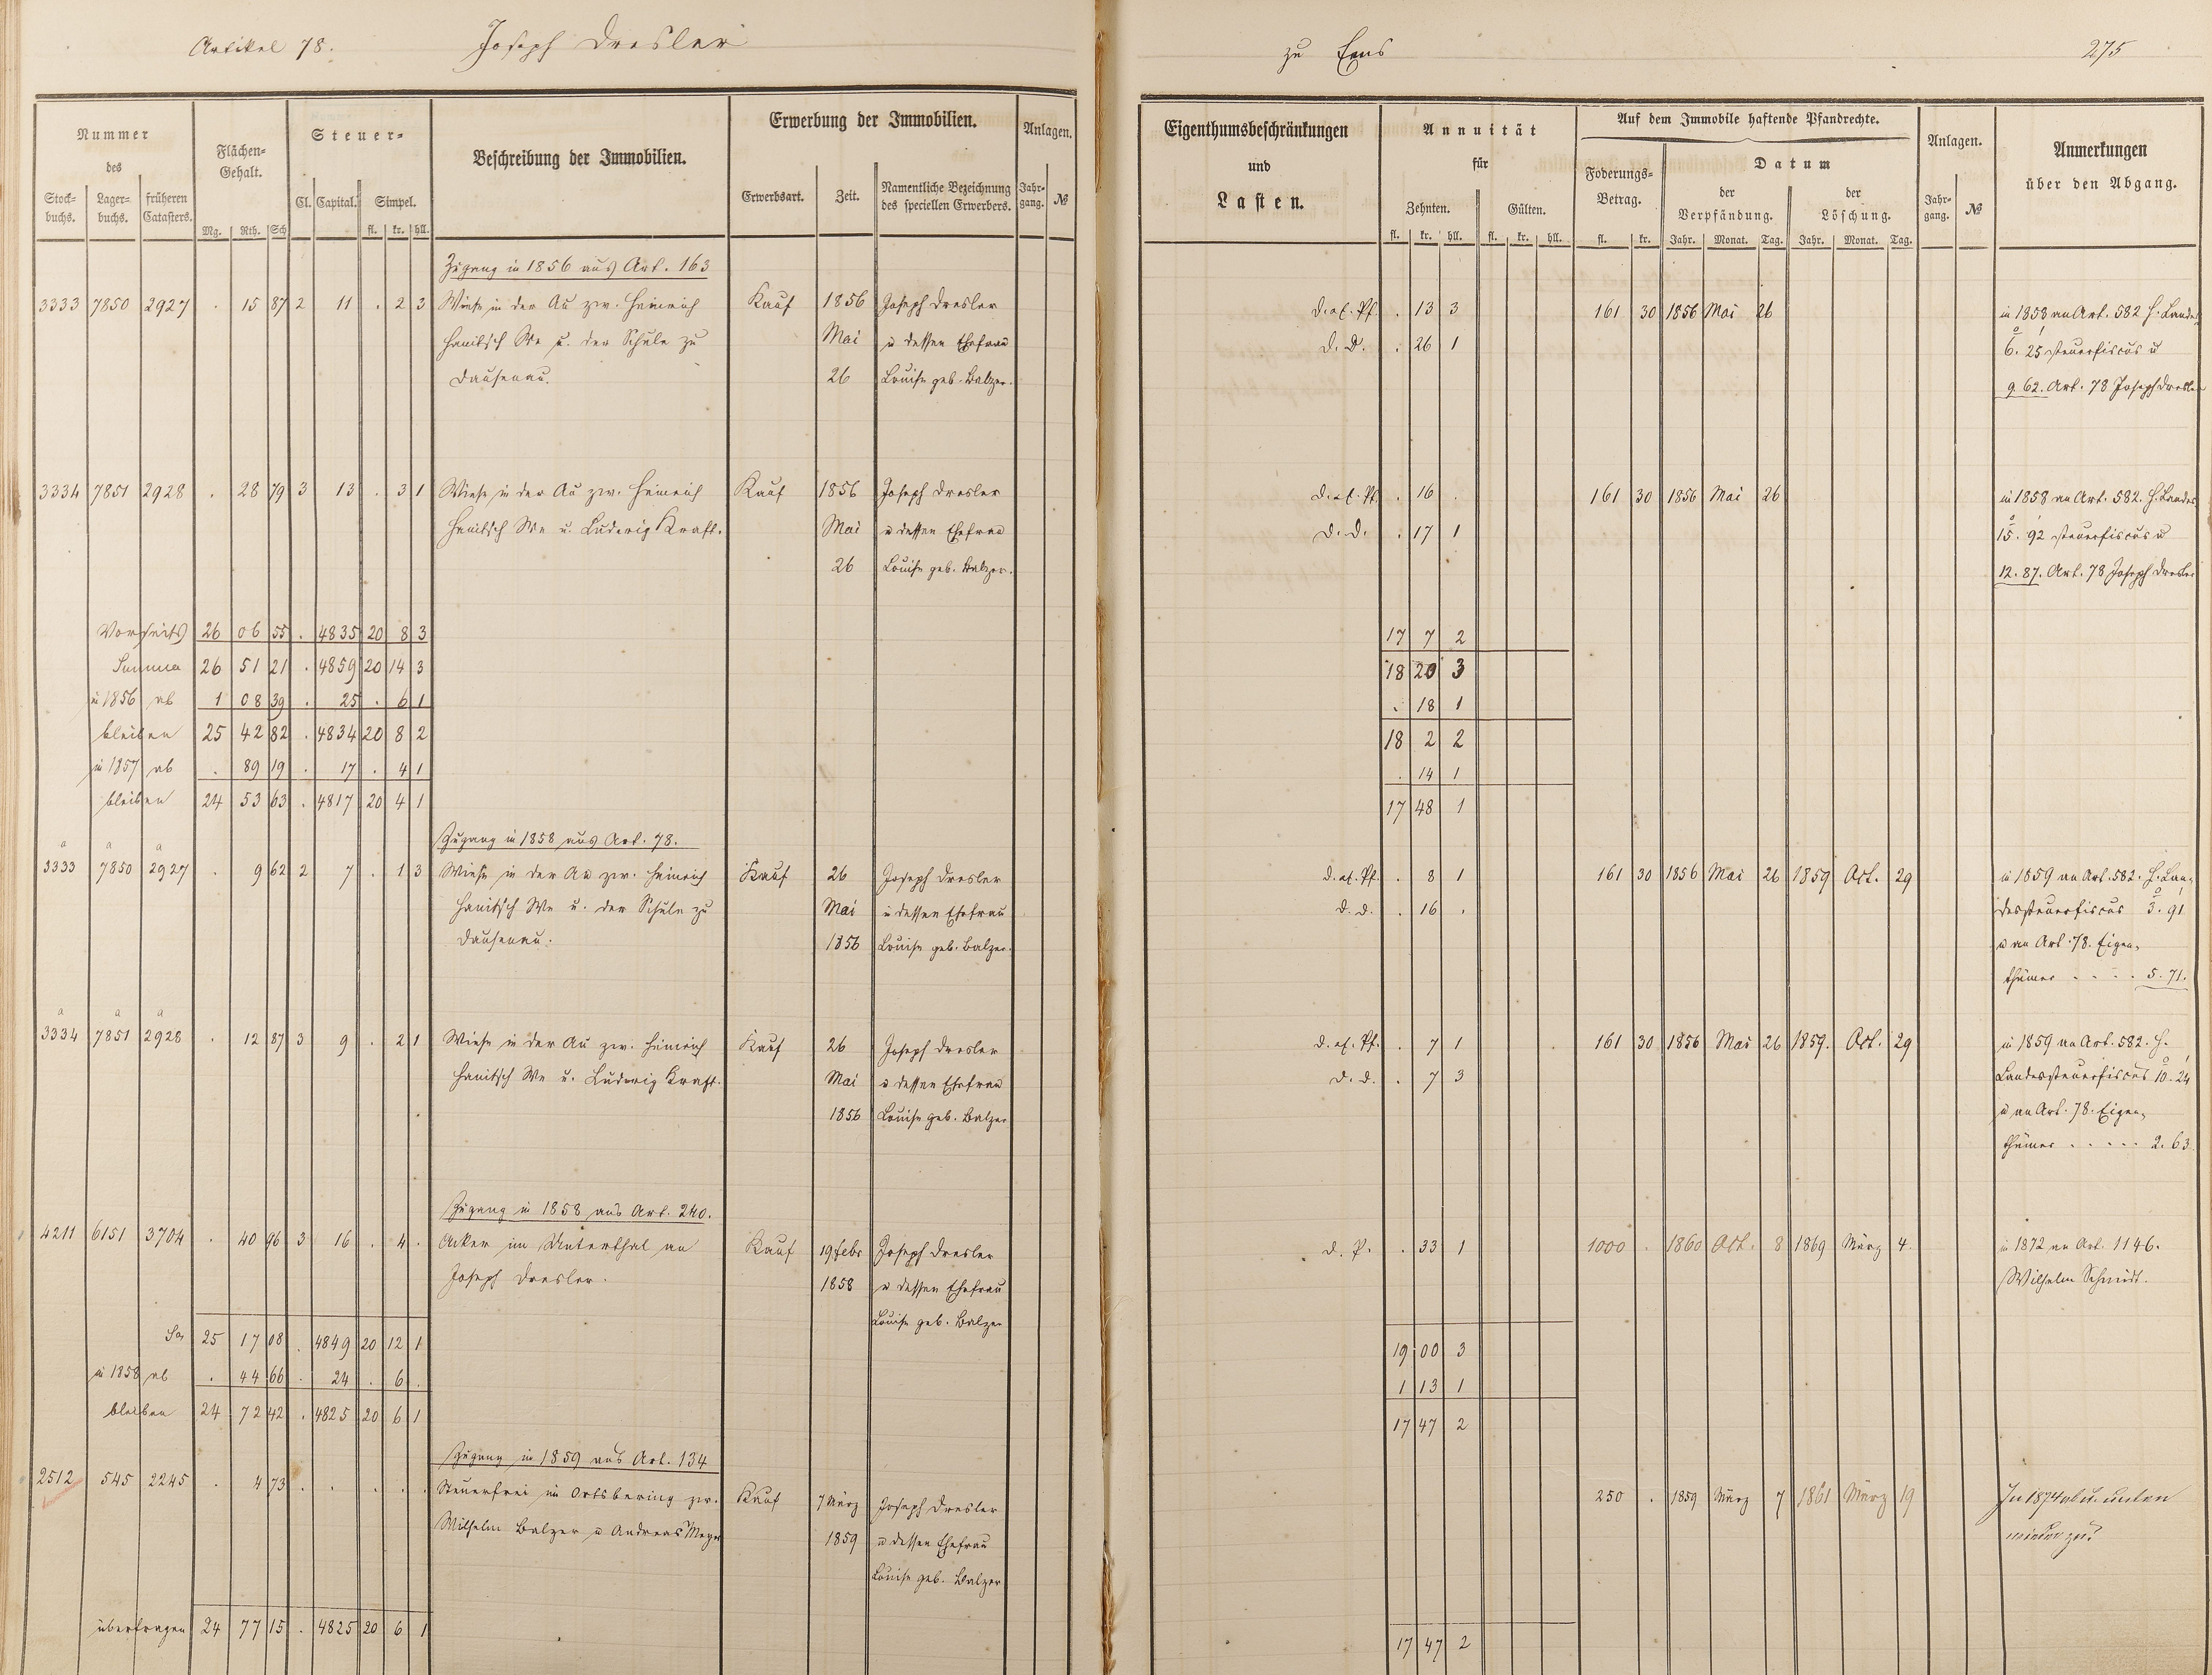 Artikel 78. Joseph Dresler zu Ems 275
Nummer des
Stock=buchs. Lager=buchs. früheren Catasters.
Flächen=Gehalt.
Mg. Rth. Sch
Steuer=
Cl. Capital. Simpel.
fl. kr. hll.
Beschreibung der Immobilien.
Erwerbung der Immobilien.
Erwerbsart. Zeit. Namentliche Bezeichnung des speciellen Erwerbers.
Anlagen.
Jahr=gang. №
Eigenthumsbeschränkungen
und
Lasten.
Annuität
für
Zehnten. Gülten.
fl. kr. hll. fl. kr. hll.
Auf dem Immobile haftende Pfandrechte.
Foderungs=Betrag.
fl. kr.
Datum
der Verpfändung. der Löschung.
Jahr. Monat. Tag. Jahr. Monat. Tag.
Anlagen.
Jahr=gang. №
Anmerkungen
über den Abgang.
Zugang in 1856 aus Art. 163
3333 7850 2927 . 15 87 2 11 . 2 3 Wiese in der Au zw. Heinrich Kauf 1856 Joseph Dresler . 13 3 161 30 1856 Mai 26 in 1858 an Art. 582 H. Landes
Hanitsch We u. der Schule zu Mai u dessen Ehefrau D. D. . 26 1 6. 25 steuerfiscus u
Dausenau. 26 Louise geb. Balzer. 9 62. Art. 78 Joseph Dresler
3334 7851 2928 . 28 79 3 13 . 3 1 Wiese in der Au zw. Heinrich Kauf 1856 Joseph Dresler . 16 . 161 30 1856 Mai 26 in 1858 an Art. 582. H. Landes
Hanitsch We u. Ludwig Kraft. Mai u dessen Ehefrau D. D. . 17 1 15. 92 steuerfiscus u
26 Louise geb. Balzer. 12. 87. Art. 78 Joseph Dresler
Vorseits 26 06 55 . 4835 20 8 3 17 7 2
Summa 26 51 21 . 4859 20 14 3 18 20 3
in 1856 ab 1 08 39 . 25 . 6 1 . 18 1
bleiben 25 42 82 . 4834 20 8 2 18 2 2
in 1857 ab . 89 19 . 17 . 4 1 . 14 1
bleiben 24 53 63 . 4817 20 4 1 17 48 1
Zugang in 1858 aus Art. 78.
a a a
3333 7850 2927 . 9 62 2 7 . 1 3 Wiese in der Au zw. Heinrich Kauf 26 Joseph Dresler . 8 1 161 30 1856 Mai 26 1859 Oct. 29 in 1859 an Art. 582. H. Lan=
Hanitsch We u. der Schule zu Mai u dessen Ehefrau D. D. . 16 . dessteuerfiscus 3. 91
Dausenau. 1856 Louise geb. Balzer. u an Art. 78. Eigen=
thümer . . . . 5. 71.
a a a
3334 7851 2928 . 12 87 3 9 . 2 1 Wiese in der Au zw. Heinrich Kauf 26 Joseph Dresler . 7 1 161 30 1856 Mai 26 1859. Oct. 29 in 1859 an Art. 582. H.
Hanitsch We u. Ludwig Kraft. Mai u dessen Ehefrau D. D. . 7 3 Landessteuerfiscus 10. 24
1856 Louise geb. Balzer u an Art. 78. Eigen=
thümer . . . . . 2. 63
Zugang in 1858 aus Art. 240.
4211 6151 3704 . 40 96 3 16 . 4 . Acker im Unterthal an Kauf 19 Febr Joseph Dresler D. P. . 33 1 1000 . 1860 Oct. 8 1869 März 4. in 1872 an Art. 1146.
Joseph Dresler. 1858 u dessen Ehefrau Wilhelm Schmidt.
Louise geb. Balzer
Sa 25 17 08 . 4849 20 12 1 19 00 3
in 1858 ab . 44 66 . 24 . 6 . 1 13 1
bleiben 24 72 42 . 4825 20 6 1 17 47 2
Zugang in 1859 aus Art. 134
2512 545 2245 . 4 73 . . . . . Steuerfrei im Ortsbering zw. Kauf 7 März Joseph Dresler 250 . 1859 März 7 1861 März 19 In 1874 ab u. unten
Wilhelm Balzer u Andreas Meyer 1859 u dessen Ehefrau wieder zu.
Louise geb. Balzer
übertragen 24 77 15 . 4825 20 6 1 17 47 2